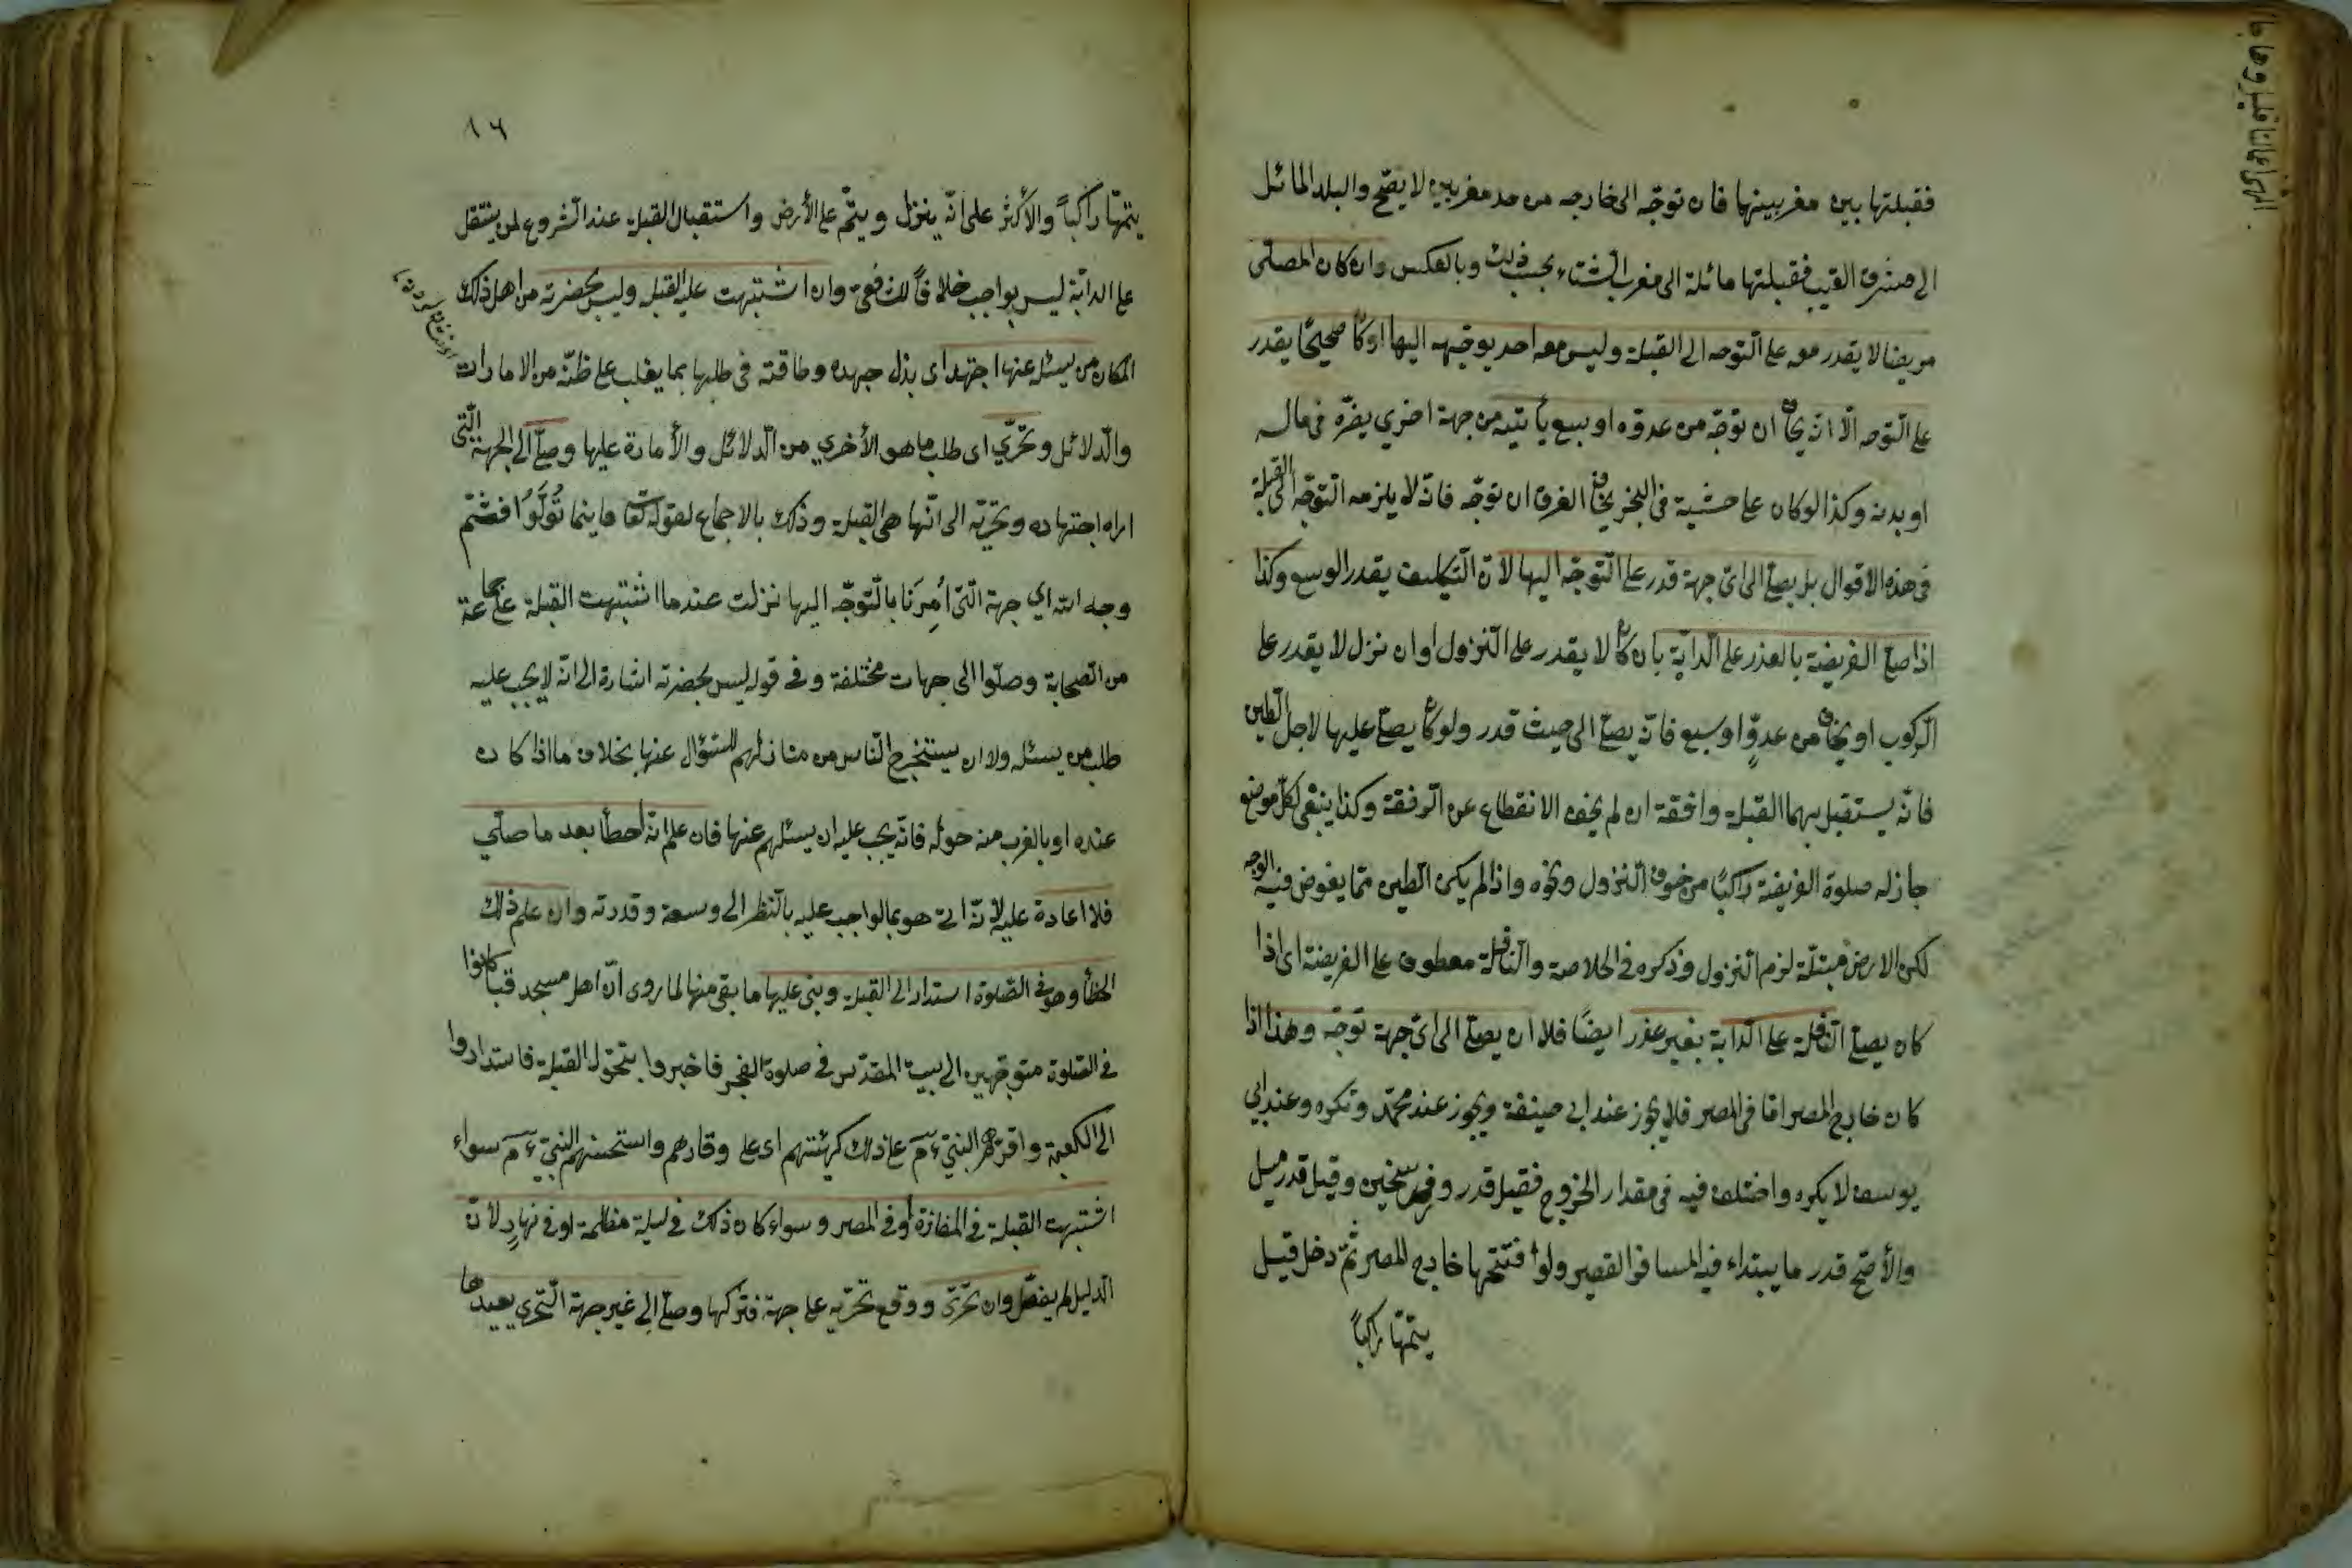 فقبلتها بين مغربيهما فان توجّه الى خارجه من حد مغربين لا يصّح والبلد المائل
الى مشرق القيب فقبلتها مائلة الى مغرب الشتاء بحسب ذلك وبالعكس وان كان المصلّى
مريضا لا يقدر معه على التّوجه الى القبلة وليس معه احد يوجّهه اليها او كان صحيحًا يقدر
على التّوجه الّا انّه يخاف ان توجّه من عدوّه او سبع يأتيه من جهة اخرى يضرّه فى ماله
او بدنه وكذا لو كان على خشبة فى البحر يخاف الغرق ان توجّه فانّه لا يلزمه التوجّه الى القبلة
فى هذه الاقوال بل يصلّى الى اىّ جهة قدر على التّوجّه اليها لانّ التّكليف يقدر الوسع وكذا
اذا صلّى الفريضة بالعذر على الدّابّة بان كان لا يقدر على النّزول او ان نزل لا يقدر على
الرّكوب او يخاف من عدوٍّ او سبع فانّه يصلّى الى حيث قدر ولو كان يصلّى عليها لاجل الطين
فانّه يستقبل بهما القبلة واقفة ان لم يخف الانقطاع عن الرّفقة وكذا ينبغى لكلّ موضع
جاز له صلوة الفريضة راكبًا من خوف النّزول ونحوه واذا لم يكن الطين ممّا يغوض فيه الوجه
لكن الارض مبتلّة لزم النّزول وذكره فى الخلاصة والنّافلة معطوف على الفريضة اى اذا
كان يصلّى النّافلة على الدّابة بغير عذر ايضًا فلا ان يصلّى الى اىّ جهة توجّه وهذا اذا
كان خارج المصر امّا فى المصر فلا يجوز عند ابى حنيفة ويجوز عند محمّد وتكره وعند ابى
يوسف لا يكره واختلف فيه فى مقدار الخروج فقيل قدر وفرسخين وقيل قدر ميل
والأصّح قدر ما يبتداء فيه المسافر القصر ولو افتتحها خارج المصر ثمّ دخل قيل
يتمّها راكباً
١٦
يتمّها راكباً والأكثر على انّه ينزل ويتمّ على الأرض واستقبال القبلة عند الشروع لمن يتنقل
على الدابّة ليس بواجب خلافاً للشافعى وان اشتبهت عليه القبلة وليس بحضرته من اهل ذلك
المكان من يسئل عنها اجتهد اى بذل جهده وطاقته فى طلبها بما يغلب على ظنّه من الامارات
والدّلائل وتحرّي اى طلب ما هو الأخري من الدّلائل والأمارة عليها وصلّى الى الجهة الّتى
اراه اجتهاده وتحرّيه الى انّها هى القبلة وذلك بالاجماع لقوله تعالى فاينما تُولَّوُا فثَمّ
وجه الله اي جهة الّتى أُمِرَنا بالتّوجّه اليها نزلت عندما اشتبهت القبلة على جماعة
من الصّحابة وصلّوا الى جهات مختلفة وفى قوله ليس بحضرته اشارة الى انّه لا يجب عليه
طلب من يسئل ولا ان يستخرج النّاس من منازلهم للسّؤال عنها بخلاف ما اذا كان
عنده او بالقرب منه حوله فانّه يجب عليه ان يسئلهم عنها فان علم انّه احطأ بعد ما صلّي
فلا اعادة عليه لأنّه اتى هو بمالواجب عليه بالنّظر الى وسعه وقدرته وان علم ذلك
الخطأ وهو فى الصّلوة استدار الى القبلة وبنى عليها ما بقى منها لما روى انّ اهل مسجد قبا كانوا
فى الصّلوة متوجّهين الى بيت المقدّس فى صلوة الفجر فاخبروا بتحوّل القبلة فاستداروا
الى الكعبة واقرّهم النبىّ على ذلك كهيئتهم اى على وقارهم واستحسنهم النبىّ سواء
اشتبهت القبلة فى المفازة أو فى المصر وسواء كان ذلك فى ليلة مظلمة او فى نهارٍ لأنّ
الدّليل لم يفصّل وان تحرّى ووقع تحرّيه على جهة فتركها وصلّى الى غير جهة التّحرى يعيدها